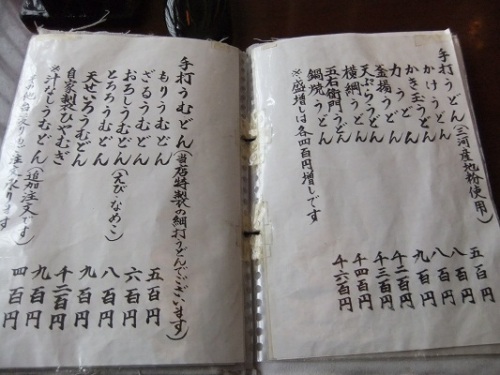 手打うどん(三河産地粉使用)
かけうどん 五百円
かき玉うどん 八百円
力うどん 八百円
釜揚うどん 九百円
天ぷらうどん 千二百円
横綱うどん 千三百円
五右衛門うどん 千四百円
鍋焼うどん 千六百円
※盛増しは各四百円増しです
手打うむどん(当店特製の細打うどんでございます)
もりうむどん 五百円
ざるうむどん 六百円
おろしうむどん(えび・なめこ) 八百円
とろろうむどん 九百円
天せいろうむどん 千二百円
自家製ひやむぎ 九百円
※汁なしうむどん(追加注文です) 四百円